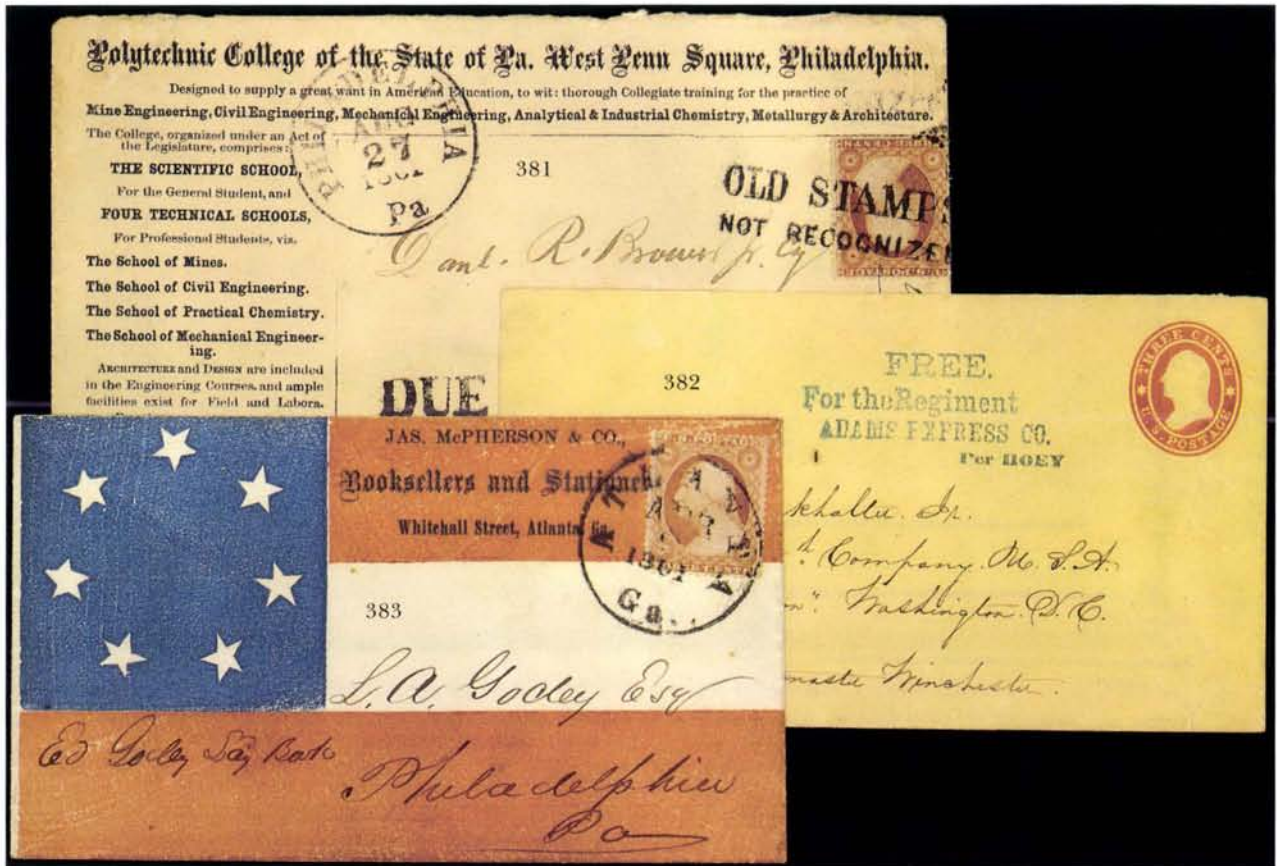 Polytechnic College of the State of Pa. West Penn Square, Philadelphia.
Designed to supply a great want in American Education, to wit: thorough Collegiate training for the practice of
Mine Engineering, Civil Engineering, Mechanical Engineering, Analytical & Industrial Chemistry, Metallurgy & Architecture.
The College, organized under an Act of
the Legislature, comprises:
THE SCIENTIFIC SCHOOL,
For the General Student, and
FOUR TECHNICAL SCHOOLS,
For Professional Students, viz.
The School of Mines.
The School of Civil Engineering.
The School of Practical Chemistry.
The School of Mechanical Engineer-
ing.
ARCHITECTURE and DESIGN are included
in the Engineering Courses, and ample
facilities exist for Field and Labora.
PHILADELPHIA
AUG
27
1861
Pa
381
OLD STAMPS
NOT RECOGNIZED
Danl. R. Brower Jr. Esq
DUE
382
FREE.
For the Regiment
ADAMS EXPRESS CO.
Per HOEY
THREE CENTS
U.S. POSTAGE
Jr.
Company. U. S. A.
Washington. D. C.
Winchester.
JAS. McPHERSON & CO.,
Booksellers and Stationers
Whitehall Street, Atlanta, Ga.
ATLANTA
APR
1861
Ga.
383
L. A. Godey Esq
Ed Godey Lady Book
Philadelphia
Pa